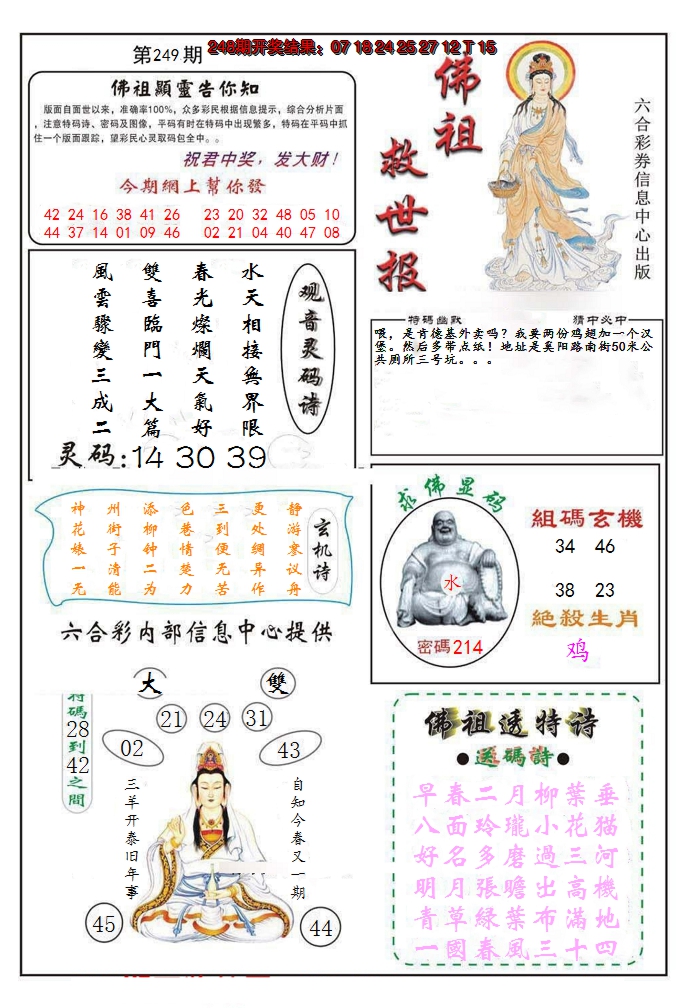 第249期
248期开奖结果：07 18 24 25 27 12 T 15
佛祖顯靈告你知
版面自面世以来，准确率100%，众多彩民根据信息提示，综合分析片面
，注意特码诗、密码及图像，平码有时在特码中出现繁多，特码在平码中抓
住一个版面跟踪，望彩民心灵取码包全中。。
祝君中奖，发大财！
今期網上幫你發
42 24 16 38 41 26 23 20 32 48 05 10
44 37 14 01 09 46 02 21 04 40 47 08
佛祖
救世报
六合彩券信息中心出版
观音灵码诗
水天相接無界限
春光燦爛天氣好
雙喜臨門一大篇
風雲驟變三成二
灵码:14 30 39
特碼幽默
猜中必中
喂，是肯德基外卖吗？我要两份鸡翅加一个汉
堡。然后多带点纸！地址是奚阳路南街50米公
共厕所三号坑。。。
玄机诗
静游寒议舟
更处绸异作
三到便无苦
色巷情楚力
添柳钟二为
州街子清能
神花婊一无
六合彩内部信息中心提供
求佛显码
水
密碼214
組碼玄機
34 46
38 23
絕殺生肖
鸡
大
雙
特碼28到42之間
21
24
31
02
43
三羊开泰旧年事
自知今春又一期
45
44
佛祖透特诗
●送碼詩●
早春二月柳葉垂
八面玲瓏小花猫
好名多磨過三河
明月張瞻出高機
青草綠葉布滿地
一國春風三十四